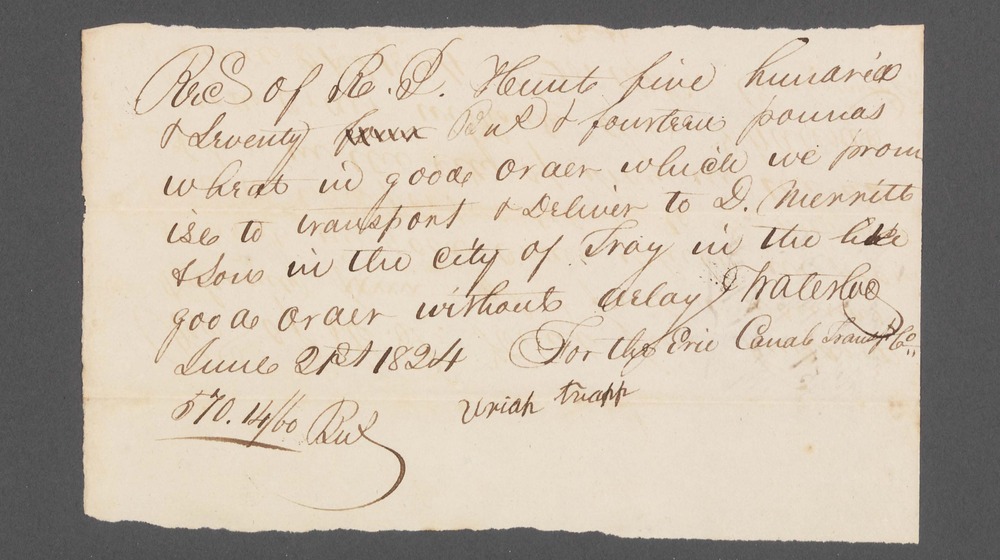 Recd of R. P. Hunt five hundred
& Seventy Bul & fourteen pounds
wheat in good order which we prom
ise to transport & Deliver to D. Merritt
& Son in the city of Troy in the like
good order without delay Waterloo
June 21st 1824 For the Erie Canal Transpt Co.
570. 14/60 Bul Uriah Trapp